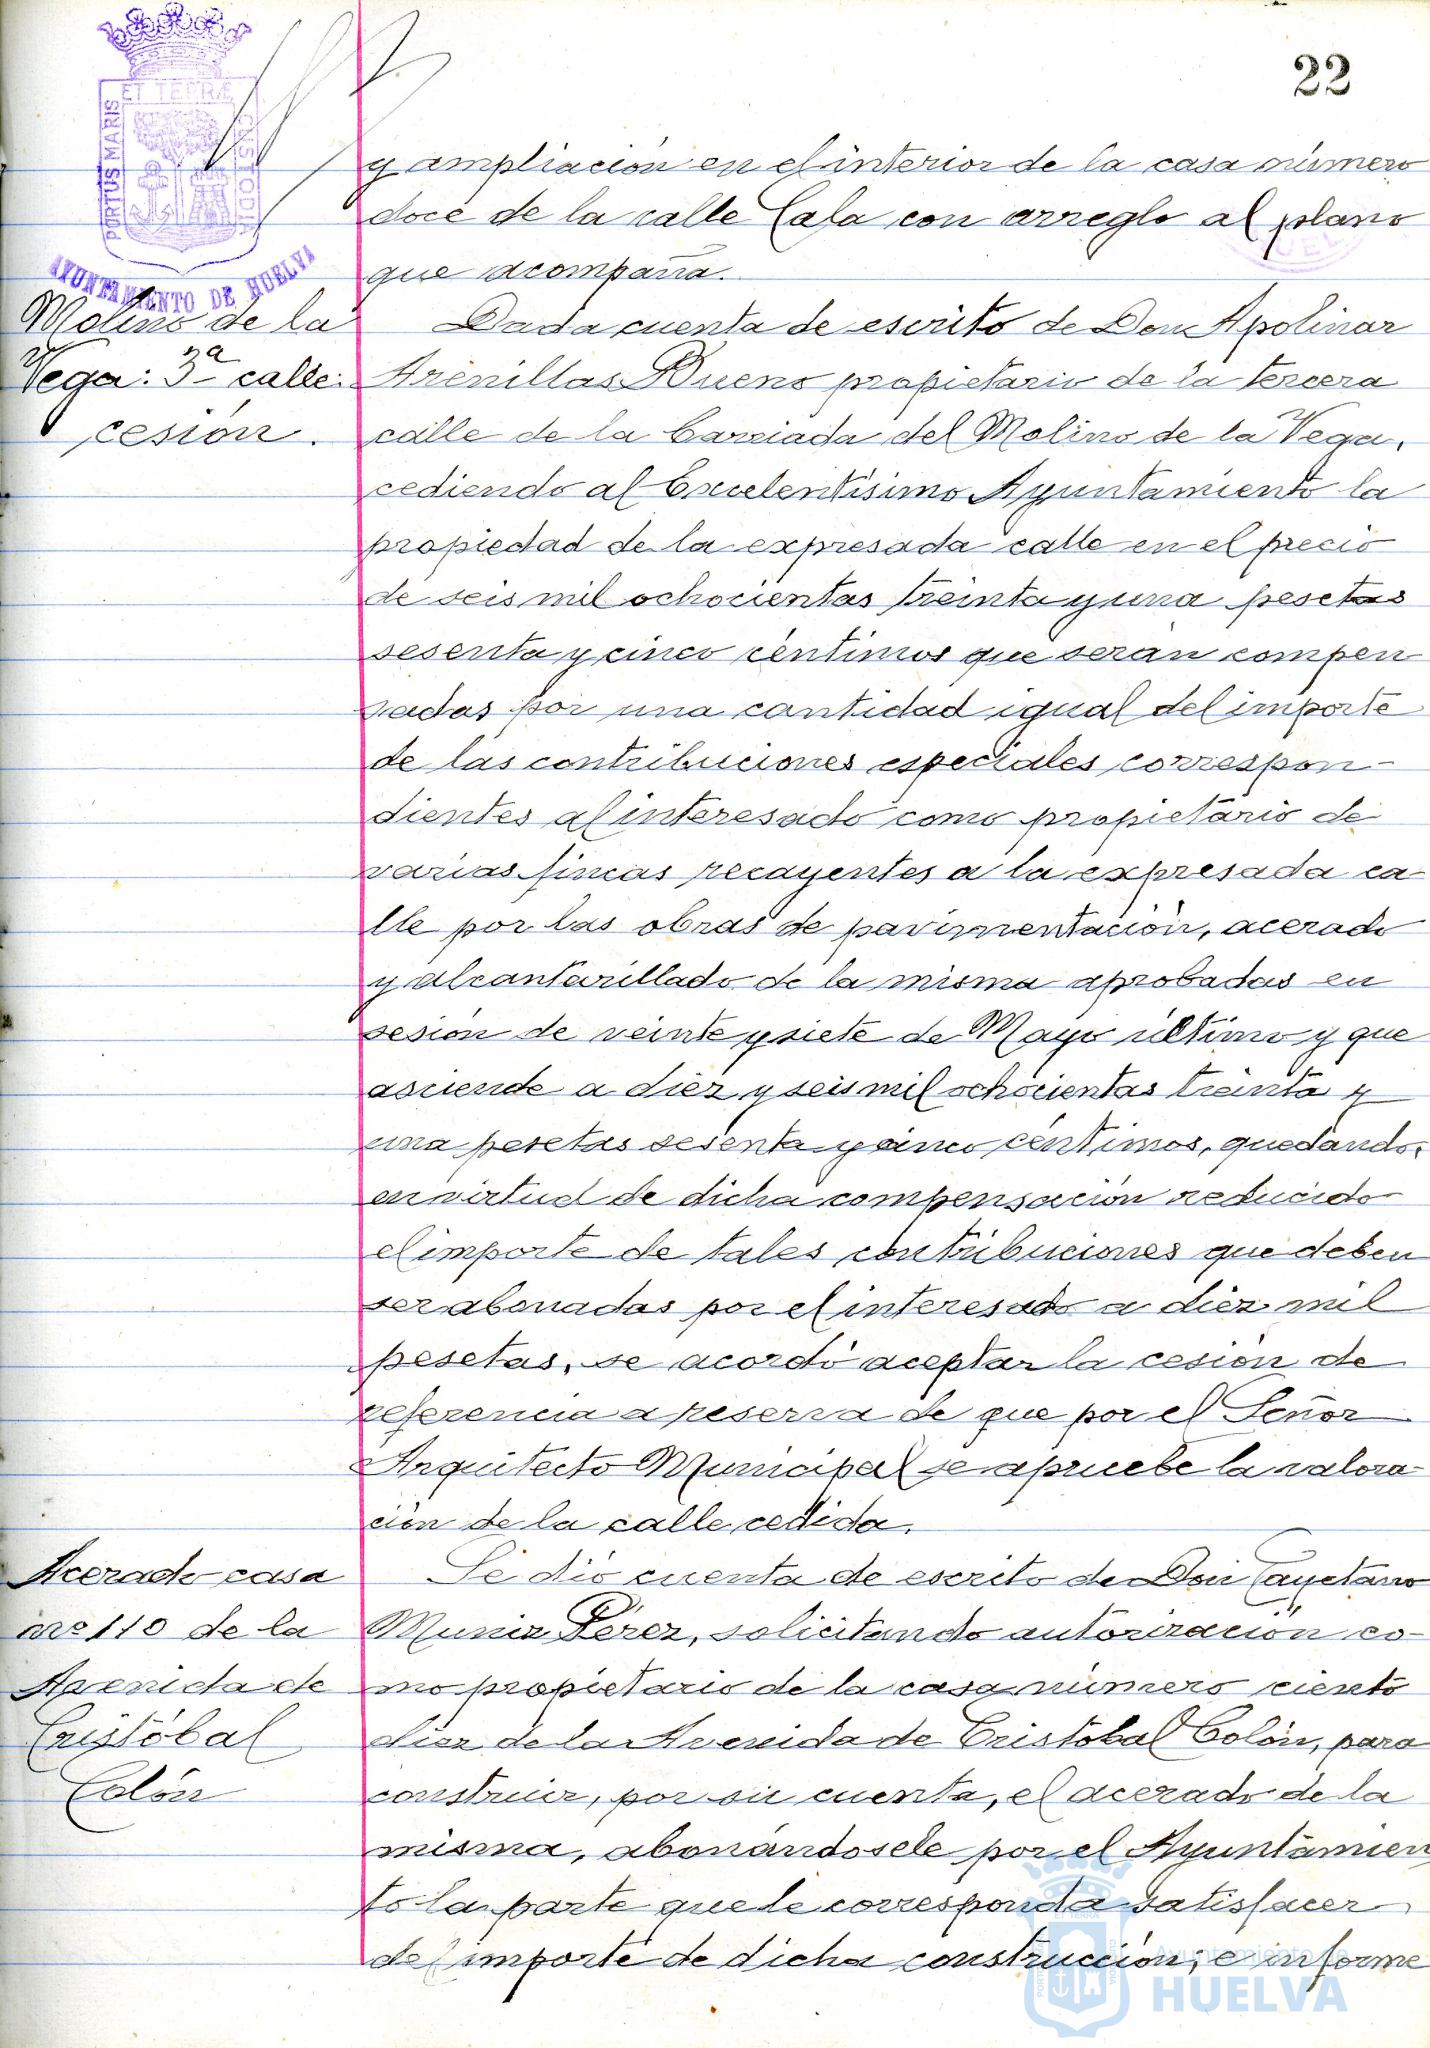 22
PORTUS MARIS
ET TERRÆ
CUSTODIA
AYUNTAMIENTO DE HUELVA
y ampliación en el interior de la casa número
doce de la calle Cala con arreglo al plano
que acompaña.
Molino de la
Vega: 3ª calle:
cesión.
Dada cuenta de escrito de Don Apolinar
Arenillas Bueno propietario de la tercera
calle de la barriada del Molino de la Vega,
cediendo al Excelentísimo Ayuntamiento la
propiedad de la expresada calle en el precio
de seis mil ochocientas treinta y una pesetas
sesenta y cinco céntimos que serán compen
sadas por una cantidad igual del importe
de las contribuciones especiales correspon-
dientes al interesado como propietario de
varias fincas recayentes a la expresada ca
lle por las obras de pavimentación, acerado
y alcantarillado de la misma aprobadas en
sesión de veinte y siete de Mayo último y que
asciende a diez y seis mil ochocientas treinta y
una pesetas sesenta y cinco céntimos, quedando,
en virtud de dicha compensación reducido
el importe de tales contribuciones que deben
ser abonadas por el interesado a diez mil
pesetas, se acordó aceptar la cesión de
referencia a reserva de que por el Señor
Arquitecto Municipal se apruebe la valora-
ción de la calle cedida.
Acerado casa
nº 110 de la
Avenida de
Cristóbal
Colón
Se dió cuenta de escrito de Don Cayetano
Muniz Pérez, solicitando autorización co-
mo propietario de la casa número ciento
diez de la Avenida de Cristóbal Colón, para
construir, por su cuenta, el acerado de la
misma, abonándosele por el Ayuntamien
to la parte que le corresponda satisfacer
del importe de dicha construcción; e informe
Ayuntamiento de
HUELVA